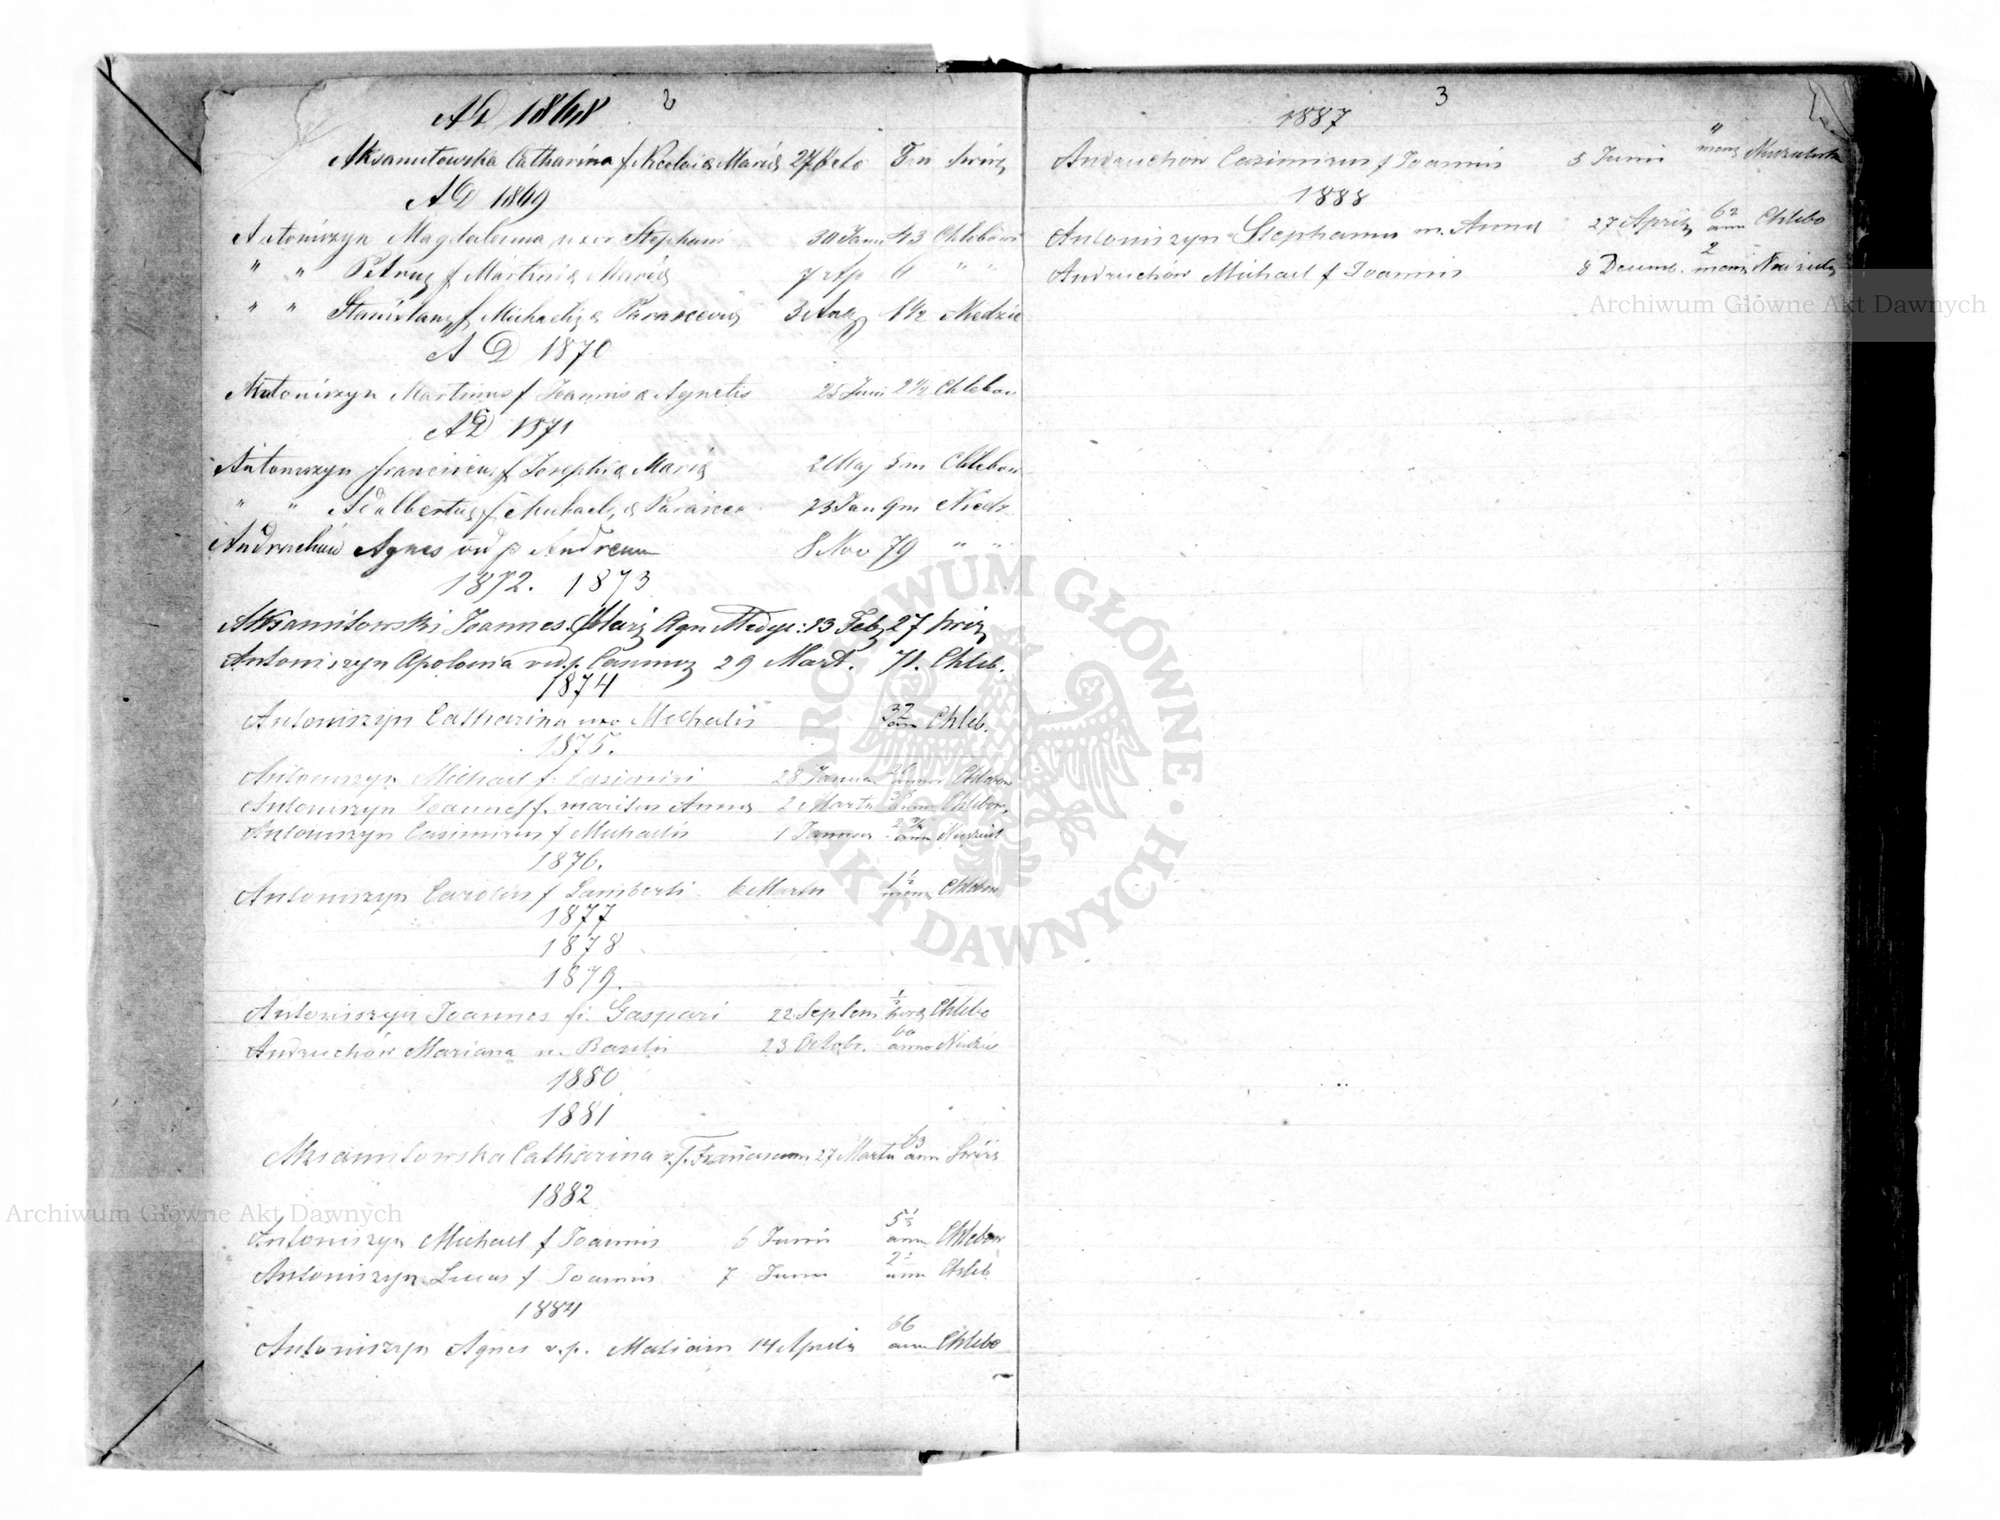 2
AD 1868
Aksamitowska Catharina f Nicolai & Mariæ 27 7 m Świrz
AD 1869
Antoniszyn Magdalenna uxor Stephani 30 Janu 43 Chlebow
" " Petrus f Martini & Mariæ 7 6 " "
" " Stanislaus f Michaelis & Parasceviæ 3 Aug 1 1/2 Niedzie
AD 1870
Antoniszyn Martinus f Joannis & Agnetis 25 Juni 2 1/2 Chlebow
AD 1871
Antoniszyn Franciscus f Josephi & Mariæ 2 Maj 5 m Chlebow
" " Adalbertus f Michael, & Parascev 23 Jan 9 m Niedz
Andruchów Agnes vid p Andream 8 Nov 79 " "
1872. 1873
Aksamitowski Joannes Mariæ Agn 13 Feb 27 Świrz
Antoniszyn Apolonia vid. p. Casimirz 29 Mart. 71. Chleb.
1874
Antoniszyn Catharina uxo Michalis 32 ann Chleb.
1875.
Antoniszyn Michael f. Casimiri 28 Janua annor Chlebow
Antoniszyn Joannes f. maritus Annæ 2 Marti anno Chlebow,
Antoniszyn Casimirus f Michaelis 1 Januar ann Niedziel
1876.
Antoniszyn Carolus f Lamberti 6 Martii 1 1/2 mens Chlebow
1877
1878
1879.
Antoniszyn Joannes fi. Gaspari 22 Septem 1/2 horæ Chlebo
Andruchów Mariana u. Basilii 23 Octobr. 60 anno Niedzie
1880
1881
Aksamitowska Catharina v. p. Franciscum 27 Martii 63 ann Świrz
1882
Antoniszyn Michael f Joannis 6 Junii 5 1/2 ann Chlebow
Antoniszyn Lucas f Joannis 7 Junii 2 1/2 ann Chleb
1884
Antoniszyn Agnes v. p. Matiam 14 Aprilis 66 ann Chlebo
3
1887
Andruchów Casimirus f Joannis 5 Junii 11 mens
1888
Antoniszyn Stephanus m. Annæ 27 Aprilis 62 ann Chlebo
Andruchów Michael f Joannis 8 Decemb. 2 mens
Archiwum Główne Akt Dawnych
ARCHIWUM GŁÓWNE AKT DAWNYCH
Archiwum Główne Akt Dawnych